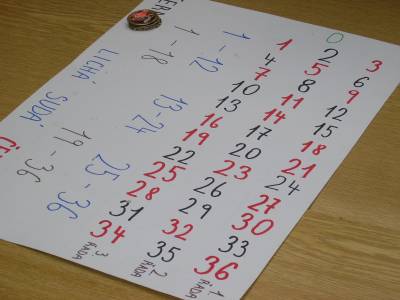 0
1 2 3
4 5 6
7 8 9
10 11 12
13 14 15
16 17 18
19 20 21
22 23 24
25 26 27
28 29 30
31 32 33
34 35 36
3. ŘADA
2. ŘADA
1. ŘADA
1-12 13-24 25-36
1-18 LICHÁ SUDÁ 19-36